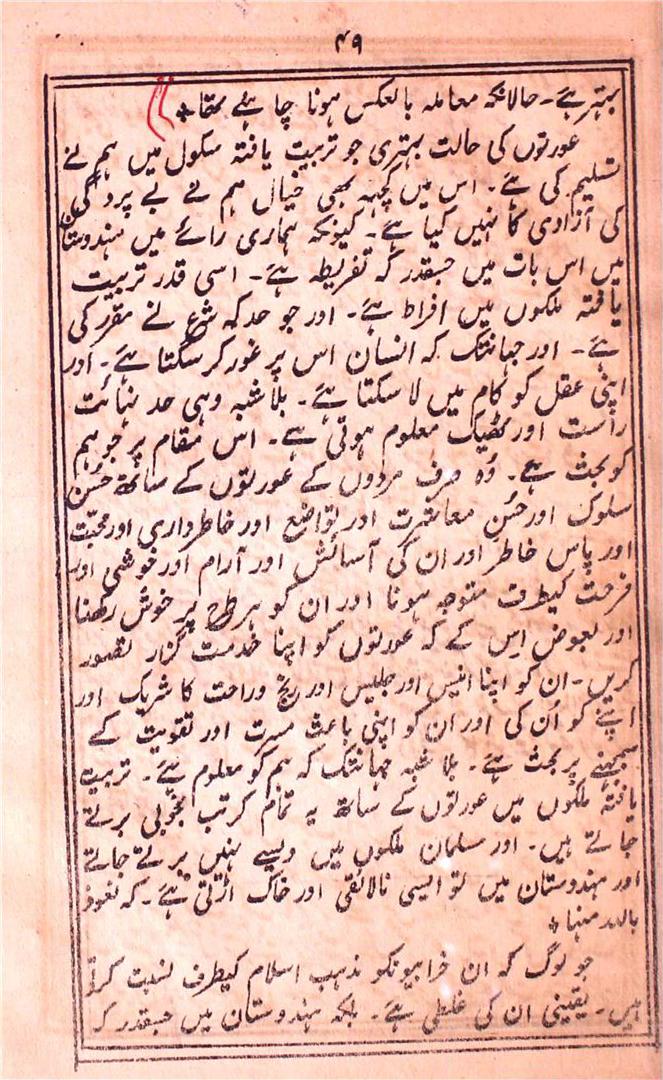 ۴۹
بہتر ہے۔ حالانکہ معاملہ بالعکس ہونا چاہئے تھا ٭
عورتوں کی حالت بہتری جو تربیت یافتہ سکول میں ہم نے
تسلیم کی ہے۔ اس میں کچہہ بھی خیال ہم نے بے پردگی
کی آزادی کا نہیں کیا ہے۔ کیونکہ ہماری رائے میں ہندوستان
میں اس بات میں جسقدر کہ تفریط ہے۔ اسی قدر تربیت
یافتہ ملکوں میں افراط ہے۔ اور جو حد کہ شرع نے مقرر کی
ہے۔ اور جہانتک کہ انسان اس پر غور کر سکتا ہے۔ اور
اپنی عقل کو کام میں لا سکتا ہے۔ بلا شبہ وہی حد نہائت
راست اور ٹھیک معلوم ہوتی ہے۔ اس مقام پر جو ہم
کو بحث ہے۔ وُہ صرف مردوں کے عورتوں کے ساتھ حسن
سلوک اور حسُن معاشرت اور تواضع اور خاطر داری اور محبت
اور پاس خاطر اور ان کی آسائش اور آرام اور خوشی اور
فرحت کیطرف متوجہ ہونا اور ان کو ہر طرح پر خوش رکھنا
اور بعوض اِس کے کہ عورتوں کو اپنا خدمت گزار تصور
کریں۔ ان کو اپنا انیس اور جلیس اور رنج وراحت کا شریک اور
اپنے کو اُن کی اور ان کو اپنی باعث مسرت اور تقویت کے
سمجہنے پر بحث ہے۔ بلا شبہ جہانتک کہ ہم کو معلوم ہے۔ تربیت
یافتہ ملکوں میں عورتوں کے ساتھ یہ تمام کرتب بخوبی برتے
جاتے ہیں۔ اور مسلمان ملکوں میں ویسے نہیں برتے جاتے
اور ہندوستان میں تو ایسی نالائقی اور خاک اڑتی ہے۔ کہ نعوذ
باللہ منہا ٭
جو لوگ کہ ان خرابیونکو مذہب اسلام کیطرف نسبت کرتے
ہیں۔ یقینی ان کی غلطی ہے۔ بلکہ ہندوستان میں جسقدر کہ